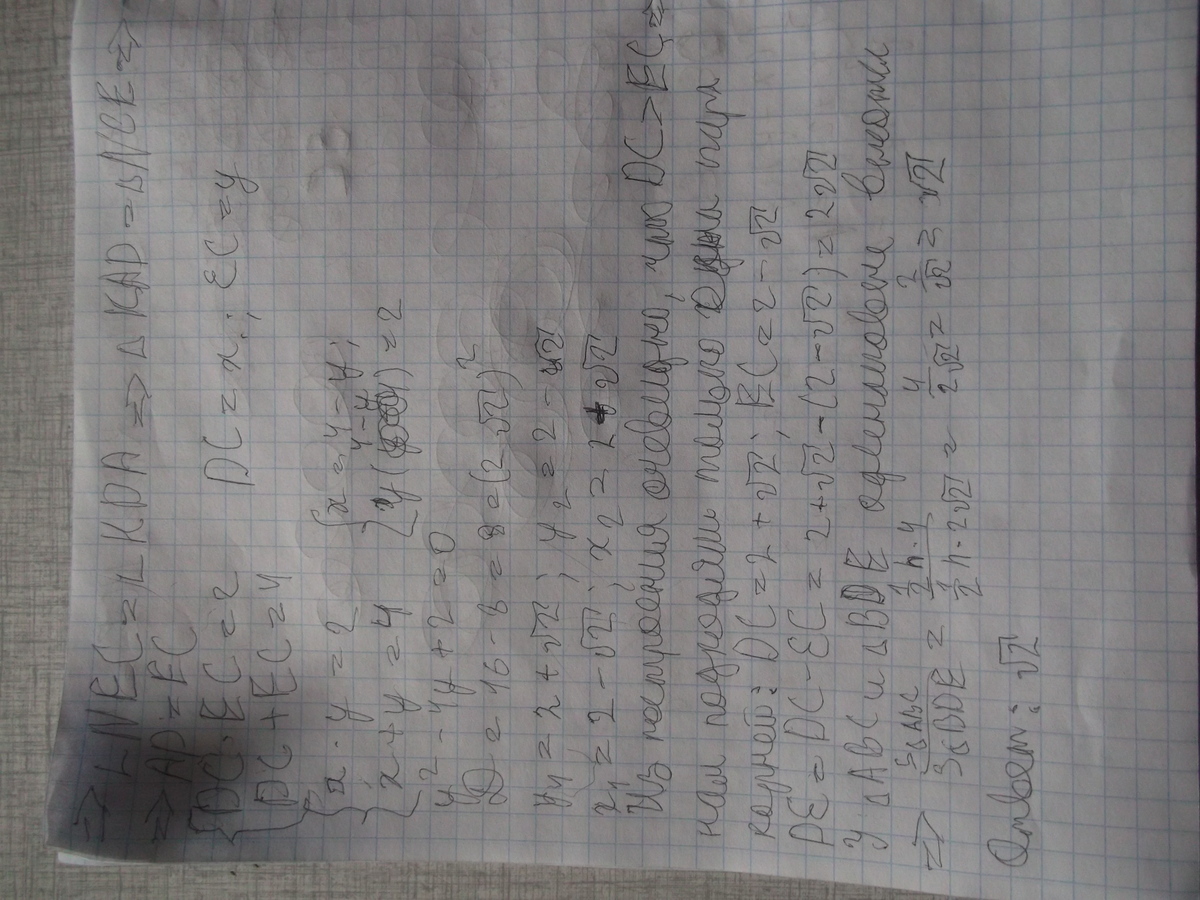 => ∠NEC = ∠KDA => △KAD = △NCE =>
=> AD = EC
{ DC · EC = 2
{ DC + EC = 4
DC = x; EC = y
{ x · y = 2
{ x + y = 4
{ x = 4 - y;
{ y(4 - y) = 2
y² - 4y + 2 = 0
D = 16 - 8 = 8 = (2√2)²
y₁ = 2 + √2; y₂ = 2 - √2
x₁ = 2 - √2; x₂ = 2 + √2
Из построения очевидно, что DC > EC =>
нам подходит только одна пара
корней: DC = 2 + √2; EC = 2 - √2
DE = DC - EC = 2 + √2 - (2 - √2) = 2√2
У △ABC и △BDE одинаковые высоты
=> S△ABC / S△BDE = (1/2 h · 4) / (1/2 h · 2√2) = 4 / 2√2 = 2 / √2 = √2
Ответ: √2